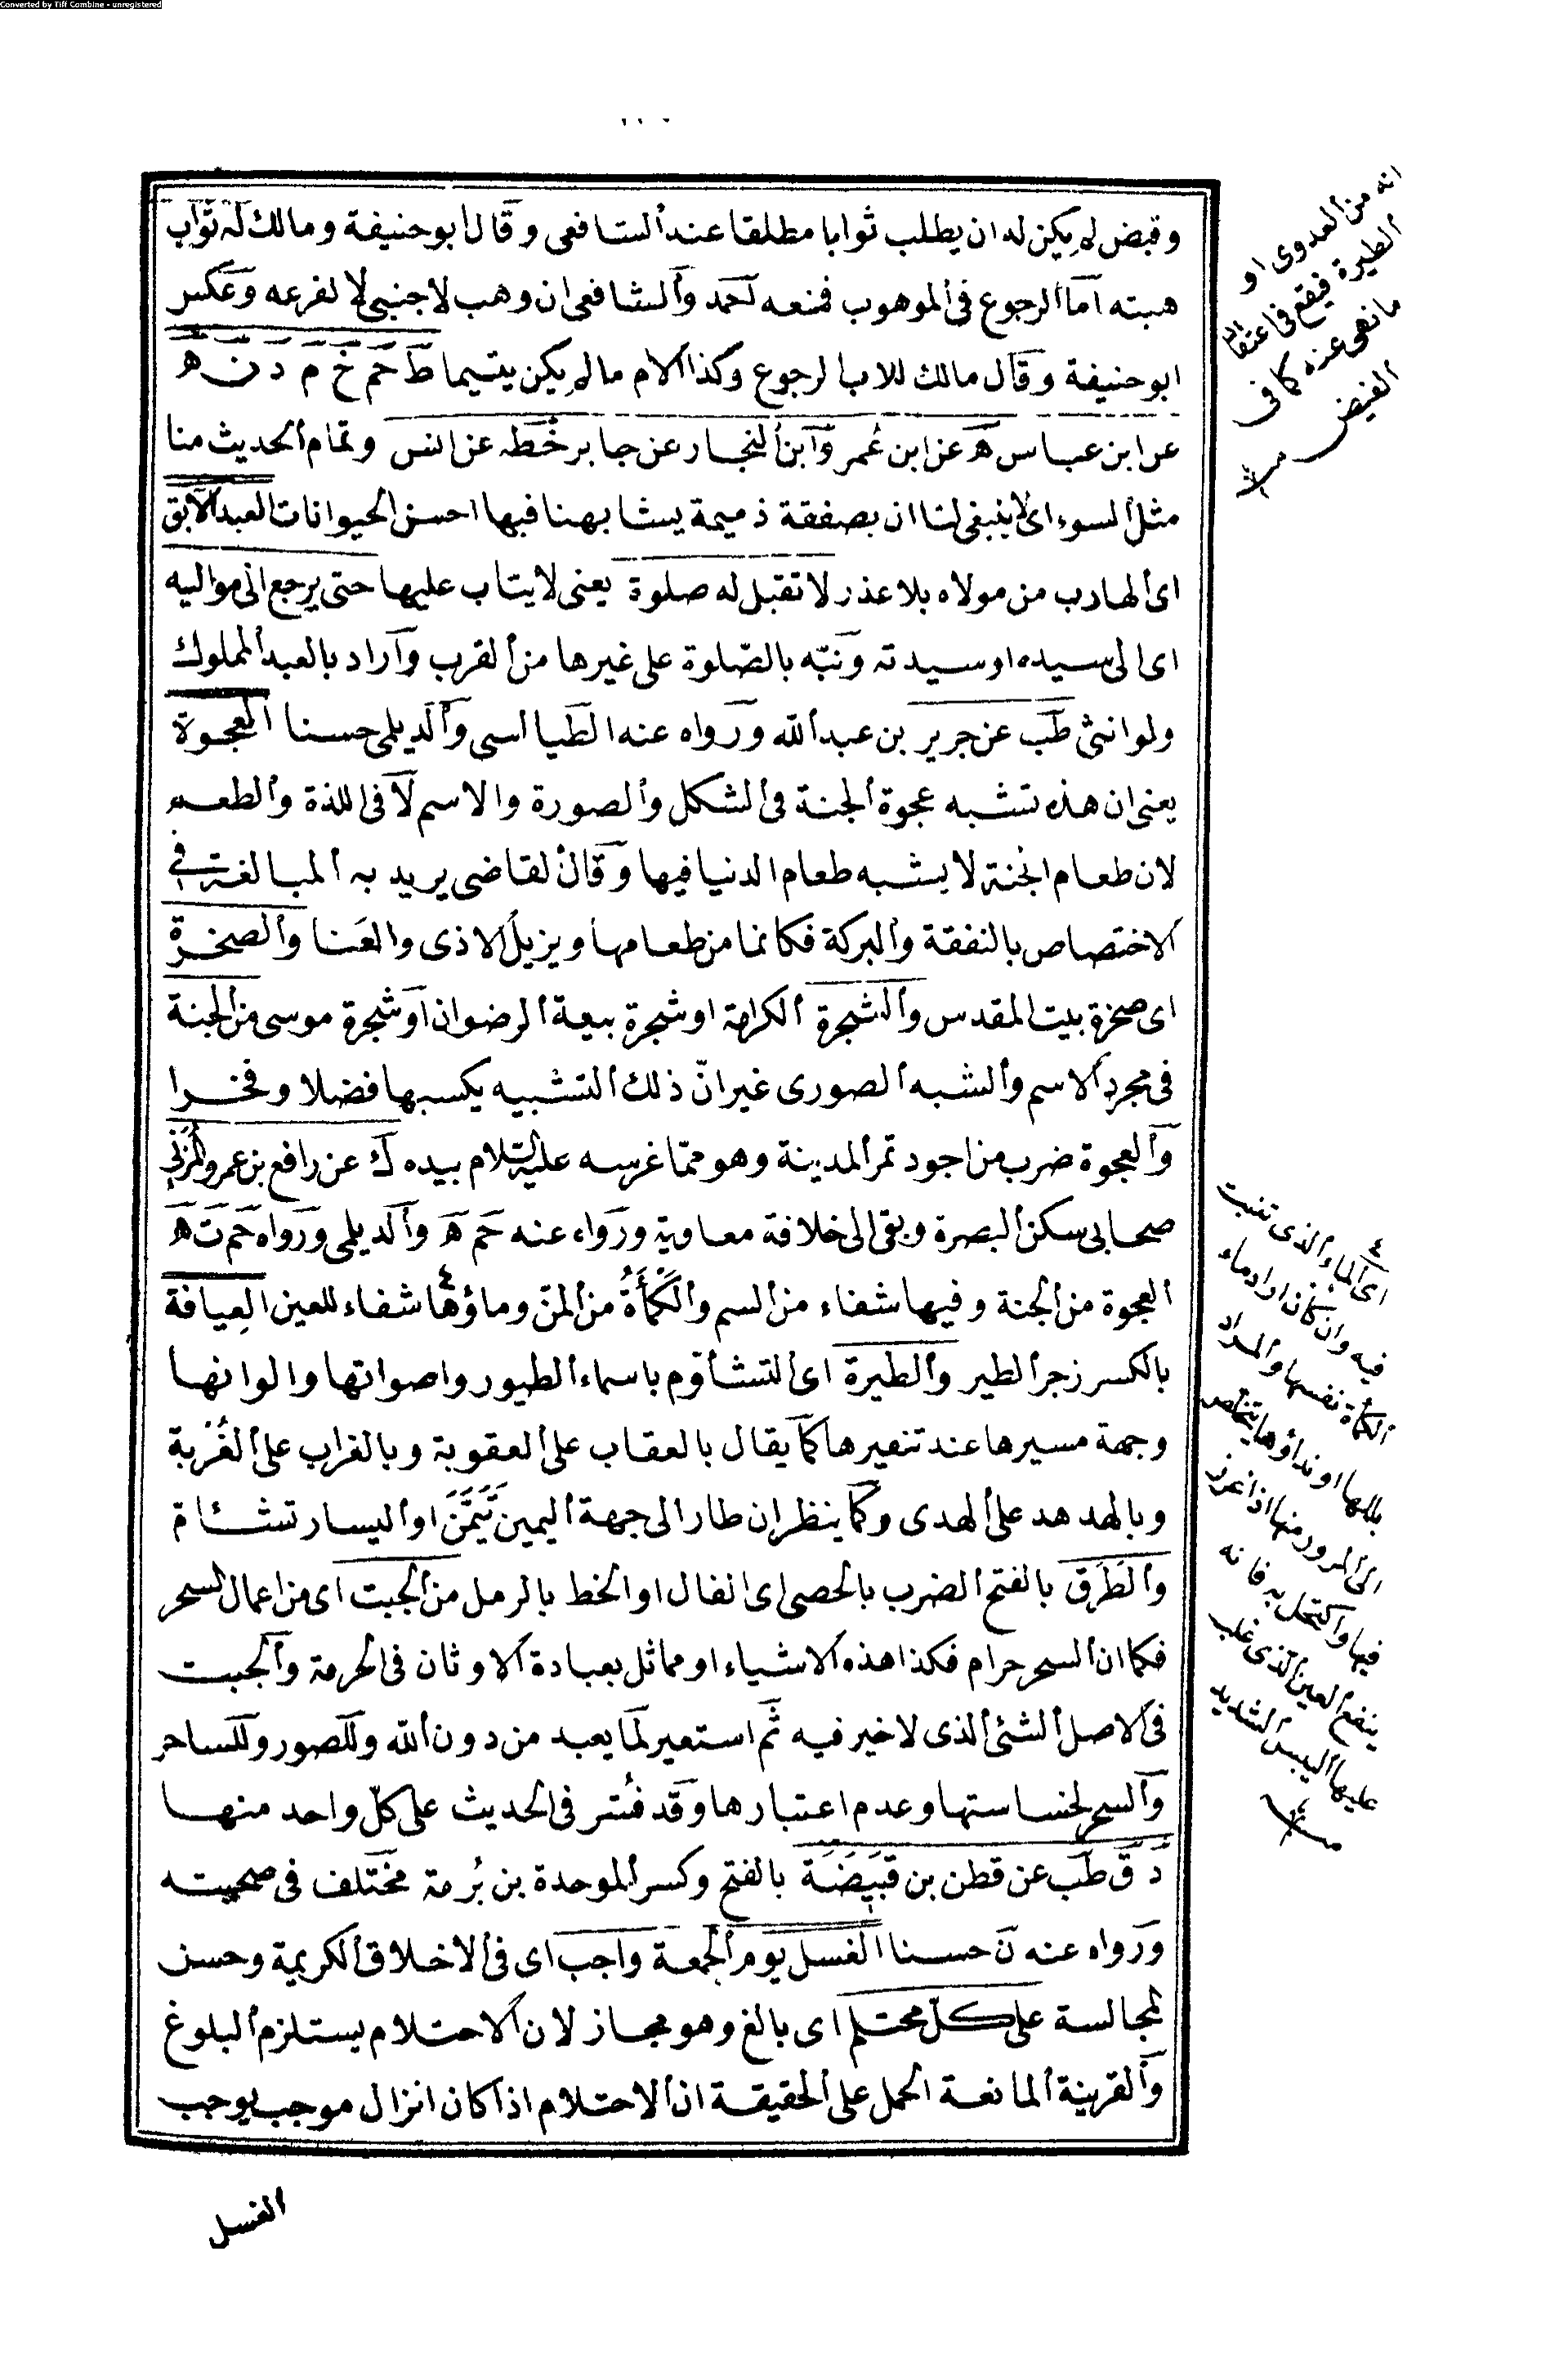 Converted by Tiff Combine - unregistered
وقبض لم يكن له ان يطلب ثوابا مطلقا عند الشافعى وقال ابو حنيفة ومالك له ثواب
هبته اما الرجوع فى الموهوب فمنعه احمد والشافعى ان وهب لاجنبى لا لفرعه وعكس
ابو حنيفة وقال مالك للاب الرجوع وكذا الام ما لم يكن يتيما ط حم خ م د ن ه
عن ابن عباس ه عن ابن عمر وابن النجار عن جابر خط عن انس وتمام الحديث منا
مثل السوء اى لا ينبغى لنا ان بصفقة ذميمة يشابهنا فيها احسن الحيوانات العبد الآبق
اى الهارب من مولاه بلا عذر لا تقبل له صلوة يعنى لا يثاب عليها حتى يرجع الى مواليه
اى الى سيده او سيدته ونبّه بالصّلوة على غيرها من القرب واراد بالعبد المملوك
ولو انثى طب عن جرير بن عبد الله ورواه عنه الطيالسى والديلمى حسنا العجوة
يعنى ان هذه تشبه عجوة الجنة فى الشكل والصورة والاسم لا فى اللذة والطعم
لان طعام الجنة لا يشبه طعام الدنيا فيها وقال القاضى يريد به المبالغة فى
الاختصاص بالنفقة والبركة فكانما من طعامها ويزيل الاذى والعنا والصخرة
اى صخرة بيت المقدس والشجرة الكرامة او شجرة بيعة الرضوان او شجرة موسى من الجنة
فى مجرد الاسم والشبه الصورى غير انّ ذلك التشبيه يكسبها فضلا وفخرا
والعجوة ضرب من اجود تمر المدينة وهو ممّا غرسه عليه السّلام بيده ك عن رافع بن عمرو المزنى
صحابى سكن البصرة وبقى الى خلافة معاوية ورواه عنه حم ه والديلمى ورواه حم ت ه
العجوة من الجنة وفيها شفاء من السم والكَمْأَةُ من المنّ وماؤها٤ شفاء للعين العِيافة
بالكسر زجر الطير والطيرة اى التشأوم باسماء الطيور واصواتها والوانها
وجهة مسيرها عند تنفيرها كما يقال بالعقاب على العقوبة وبالغراب على الغُرْبة
وبالهدهد على الهدى وكما ينظر ان طار الى جهة اليمين تَيَمَّنَ او اليسار تشئام
والطَرْق بالفتح الضرب بالحصى اى الفال او الخط بالرمل من الجبت اى من اعمال السحر
فكما ان السحر حرام فكذا هذه الاشياء او مماثل بعبادة الاوثان فى الحرمة والجبت
فى الاصل الشئ الذى لا خير فيه ثم استعير لما يعبد من دون الله وللصور وللساحر
والسحر لخساستها وعدم اعتبارها وقد فُسر فى الحديث على كلّ واحد منها
د ق طب عن قطن بن قَبِيصَة بالفتح وكسر الموحدة بن بُرمة مختلف فى صحبته
ورواه عنه ن حسنا الغسل يوم الجمعة واجب اى فى الاخلاق الكريمة وحسن
المجالسة على كلّ محتلم اى بالغ وهو مجاز لان الاحتلام يستلزم البلوغ
والقرينة المانعة الحمل على الحقيقة ان الاحتلام اذا كان انزال موجب يوجب
الغسل
انه من العدوى او
الطيرة فيقع فى اعتقاد
ما نهى عنه كما فى
الفيض
٤
اى الماء الذى تنبت
فيه وان كان اراد ماء
الكمأة نفسها والمراد
بللها او نداؤها
الى المرور منها اذا غرز
فيها واكتحل به فانه
ينفع العين الذى غلب
عليها اليبس الشديد